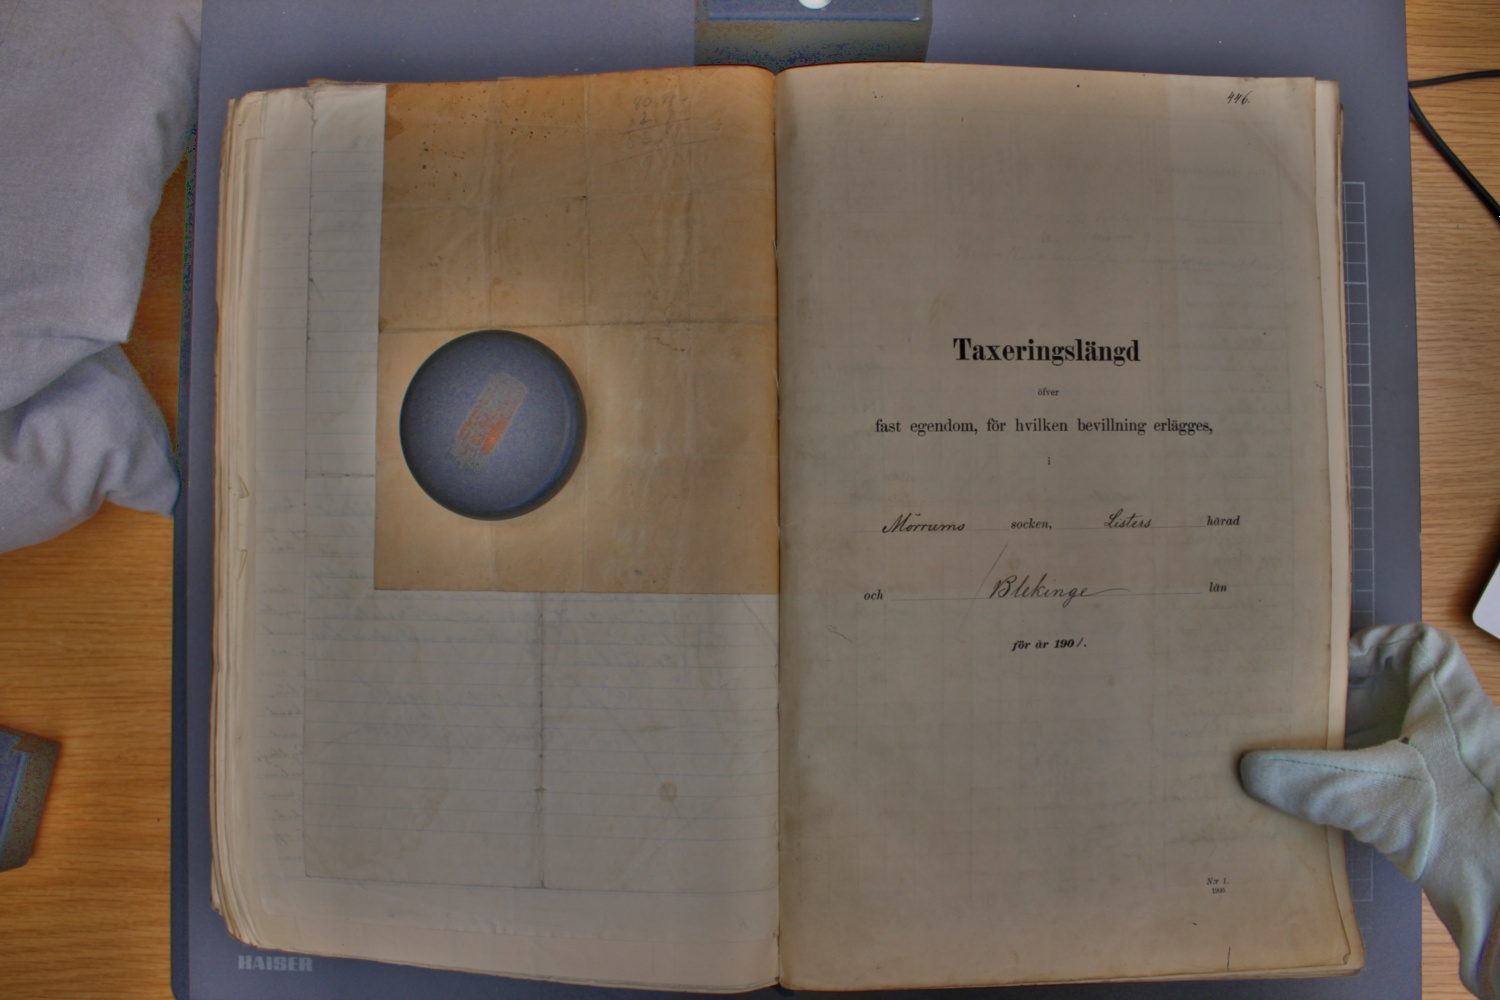 446.
Taxeringslängd
öfver
fast egendom, för hvilken bevillning erlägges,
i
Mörrums socken, Listers härad
och Blekinge län
för år 1901.
N:r 1.
1900.
KAISER